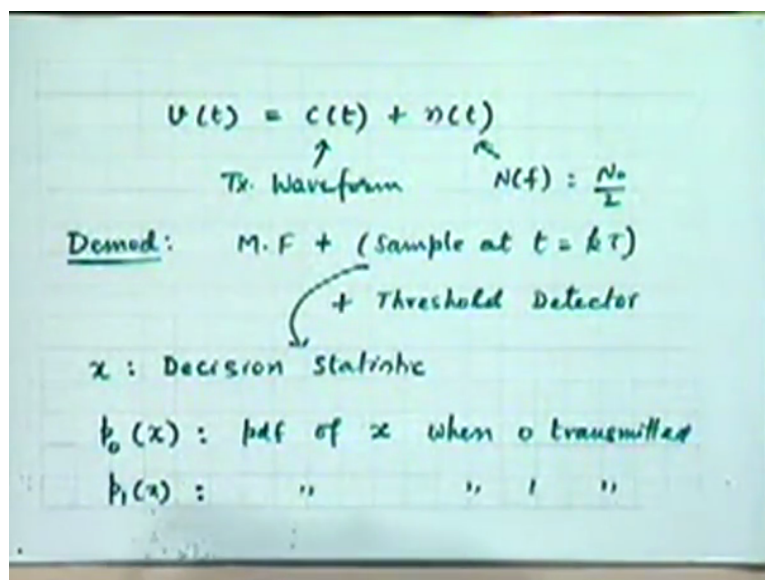 v(t) = c(t) + n(t)
Tx. Waveform N(f) : N₀/2
Demod: M.F + (Sample at t = kT)
+ Threshold Detector
x : Decision Statistic
p₀(x) : pdf of x when 0 transmitted
p₁(x) : " " 1 "